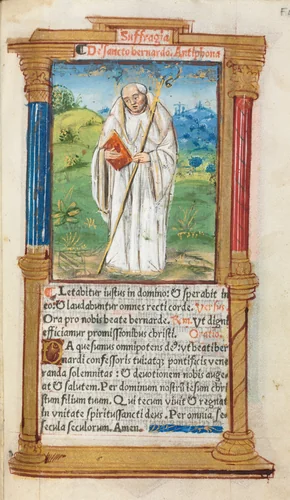 Suffragia
¶ De sancto bernardo. Antiphona
¶ Letabitur iustus in domino: & sperabit in
eo: & laudabuntur omnes recti corde. Versus.
Ora pro nobis beate bernarde. Rm̃. Vt digni
efficiamur promissionibus christi. Oratio.
DA quesumus omnipotens deꝰ: vt beati ber
nardi confessoris tui atqȝ pontificis vene
randa solemnitas: & deuotionem nobis auge
at & salutem. Per dominum nostrũ iesum chri
stum filium tuum. Qui tecum viuit & regnat
in vnitate spiritussancti deus. Per omnia se
secula seculorum. Amen.